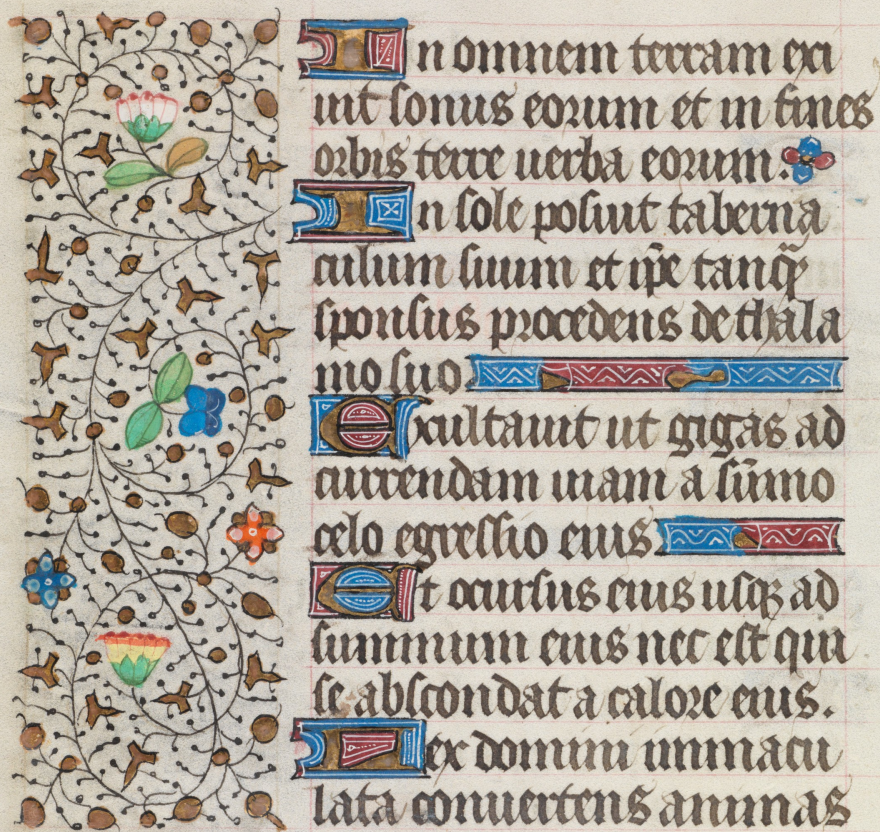 In omnem terram exi
uit sonus eorum et in fines
orbis terre uerba eorum.
In sole posuit taberna
culum suum et ip̄e tanq̄
sponsus procedens de thala
mo suo
Exultauit ut gigas ad
currendam uiam a sūmo
celo egressio eius
Et ocursus eius usqꝫ ad
summum eius nec est qui
se abscondat a calore eius.
Lex domini inmacu
lata conuertens animas